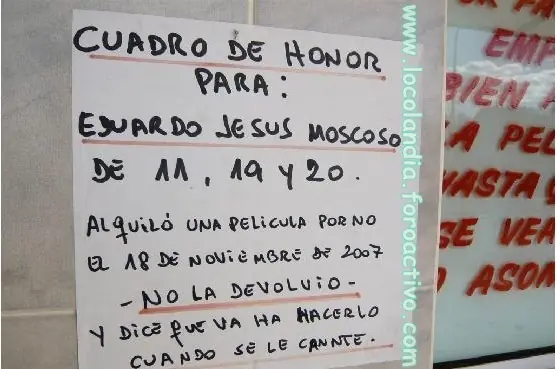 CUADRO DE HONOR
PARA:
EDUARDO JESUS MOSCOSO
DE 11, 19 Y 20.
ALQUILÓ UNA PELICULA PORNO
EL 18 DE NOVIEMBRE DE 2007
- NO LA DEVOLVIO -
Y DICE QUE VA HA HACERLO
CUANDO SE LE CANNTE.
www.locolandia.foroactivo.com
EMP
BIEN
A PEL
HASTA
SE VEA
ASOM